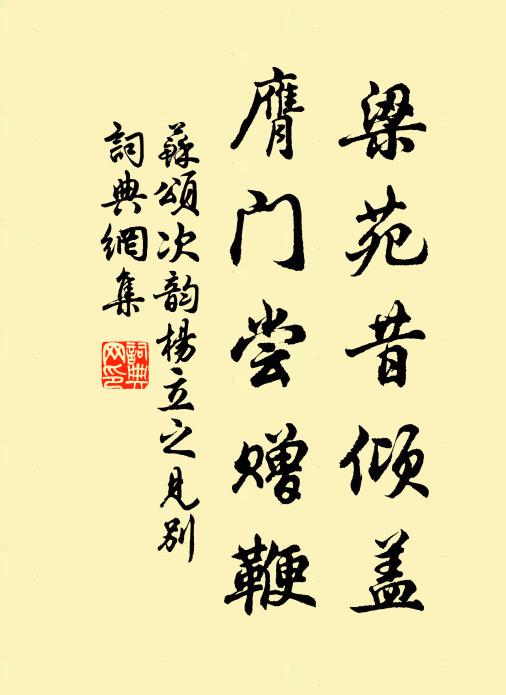 梁苑昔倾盖
膺门尝赠鞭
蘇頌次韵楊立之見别
詞典網集
詞典网印